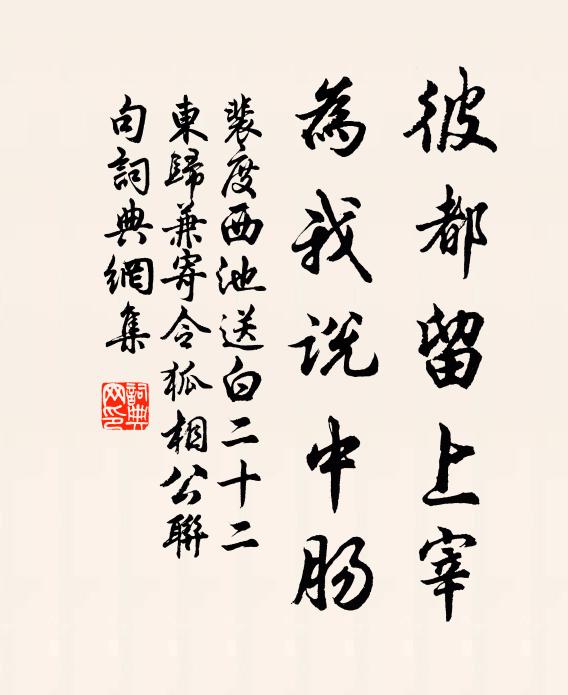 彼都留上宰
為我說中腸
裴度西池送白二十二
東歸兼寄令狐相公聯
句詞典網集
詞典网印